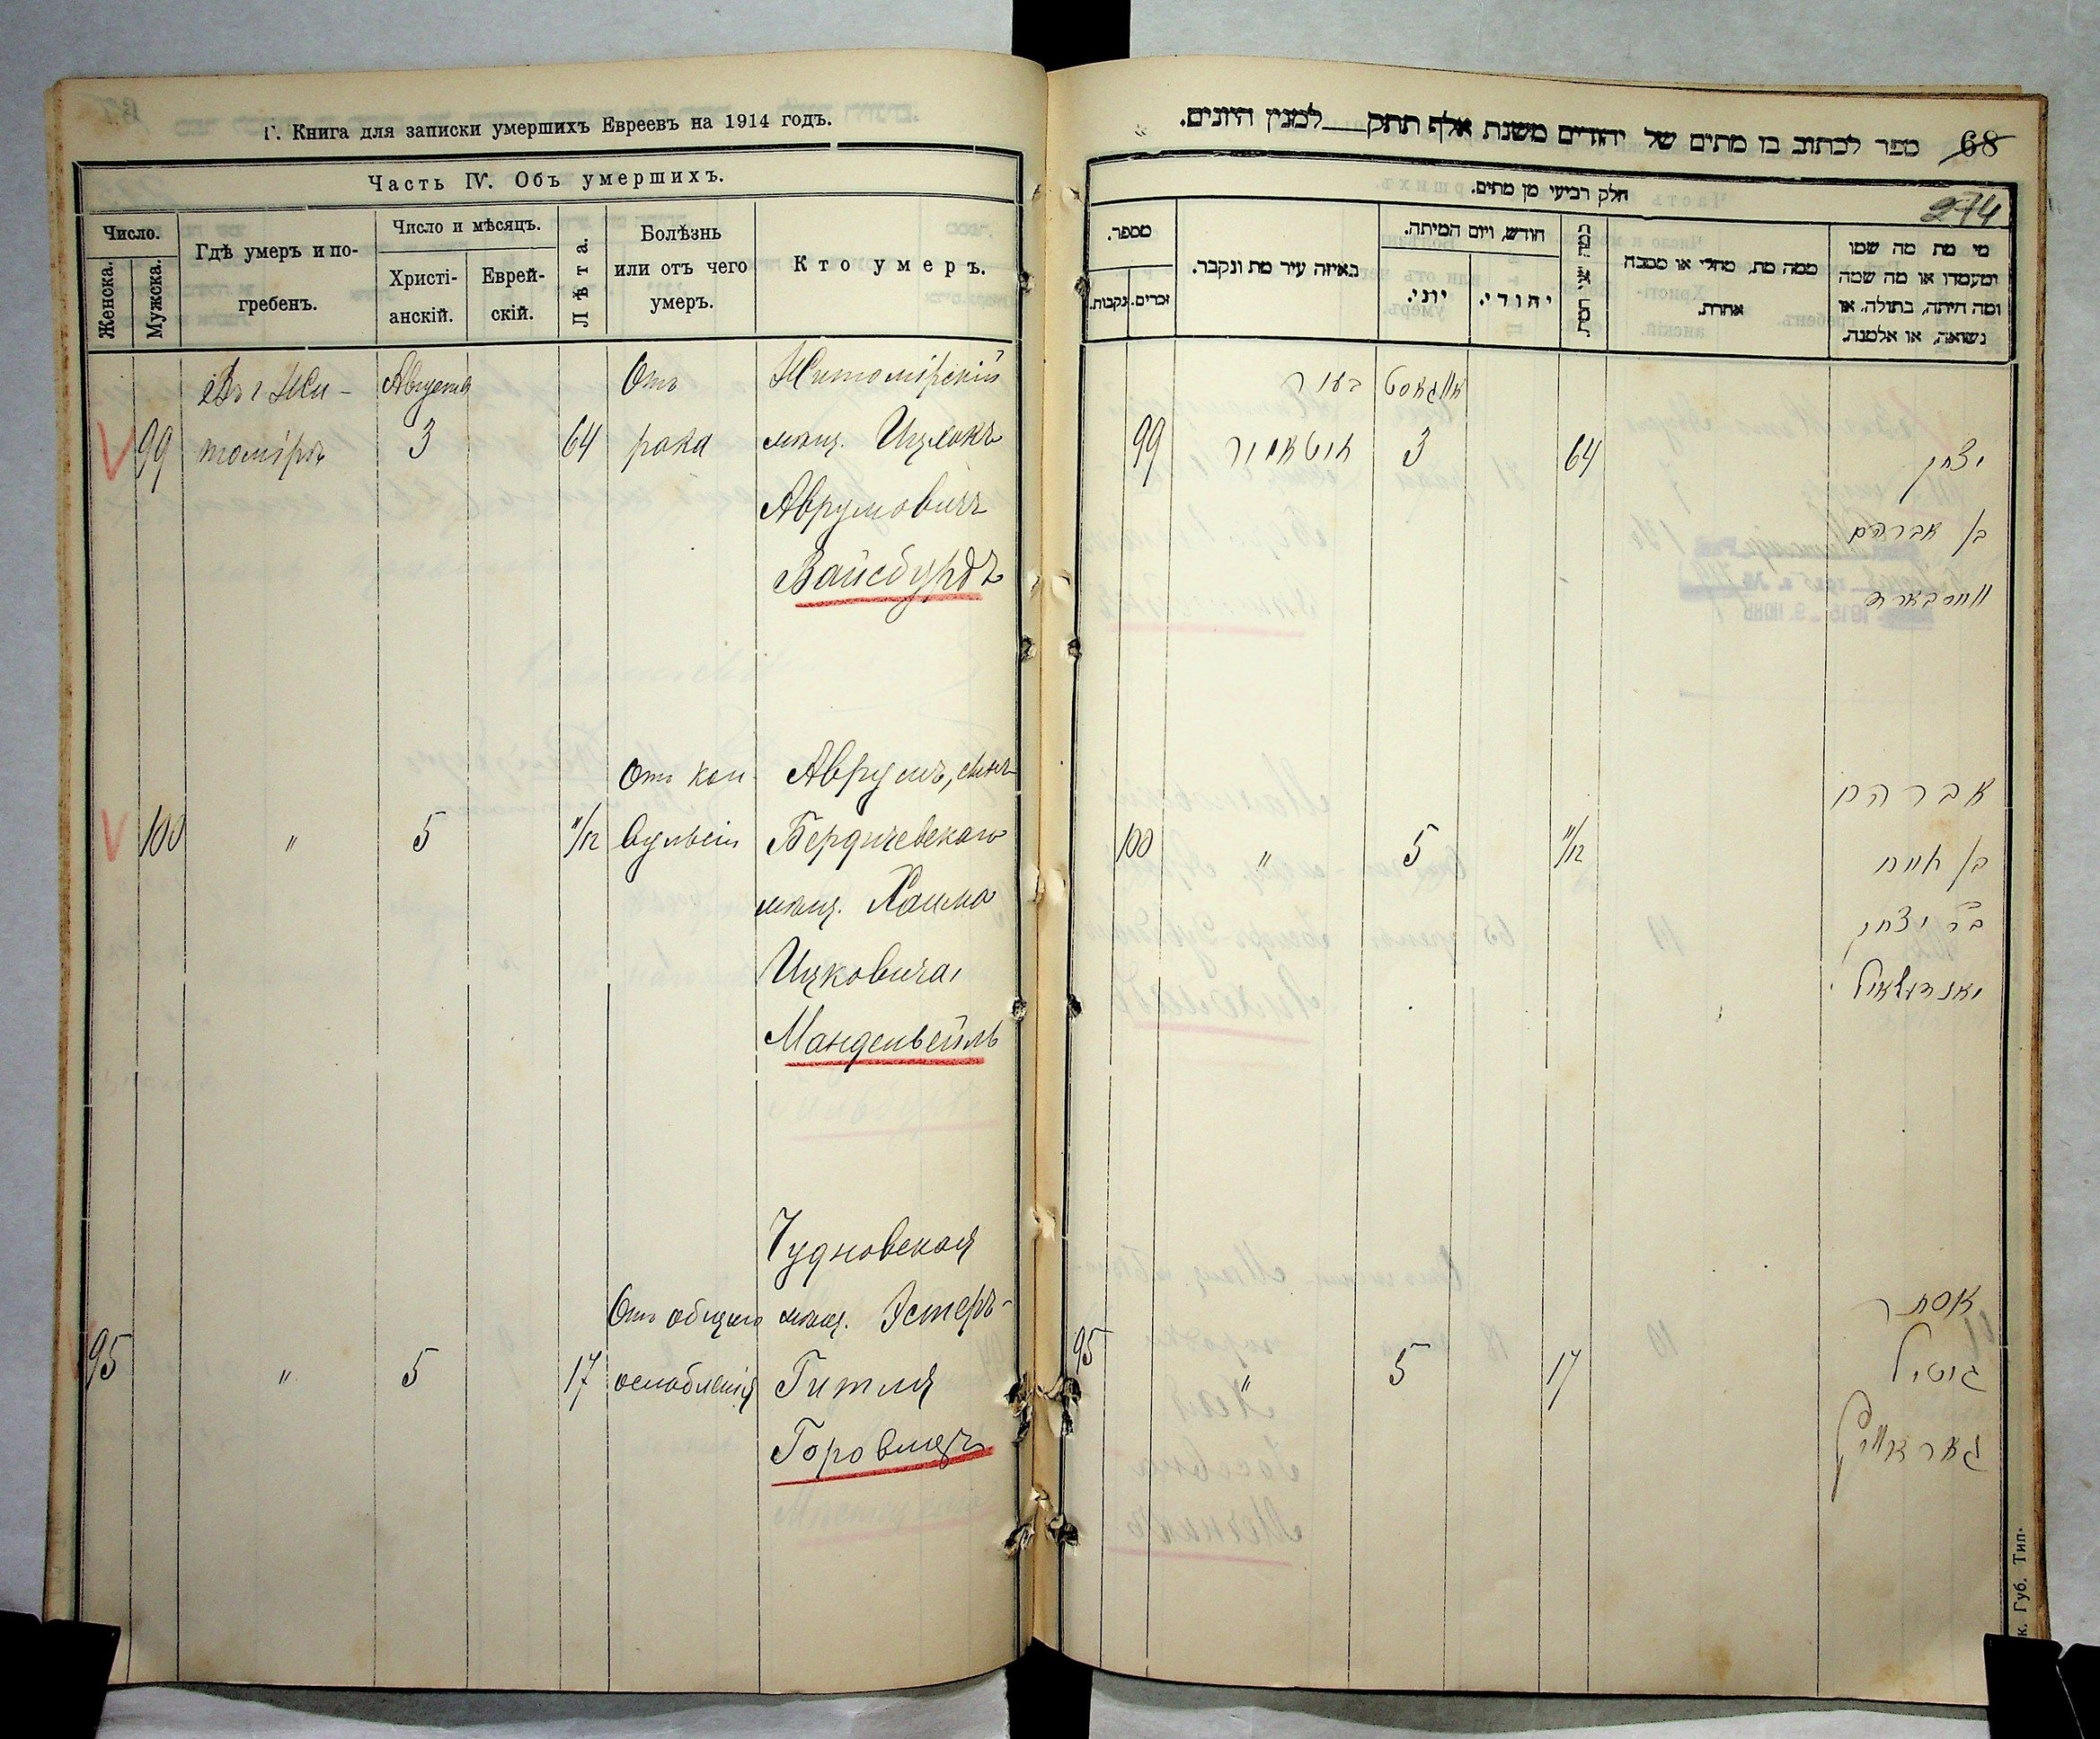 Г. Книга для записки умершихъ Евреевъ на 1914 годъ.
Часть IV. Объ умершихъ.
Число.
Женска.
Мужска.
Гдѣ умеръ и по-
гребенъ.
Число и мѣсяцъ.
Христі-
анскій.
Еврей-
скій.
Лѣта.
Болѣзнь
или отъ чего
умеръ.
Кто умеръ.
Въ г. Жи- Августа Отъ Житомірскій
99 томірѣ 3 64 рака мѣщ. Ицхокъ
Аврумовичъ
Вайсбурдъ
Отъ кон- Аврумъ, сынъ
100 " 5 11/12 вульсіи Бердичевскаго
мѣщ. Хаима
Ицковича
Манденвейль
Чудновская
Отъ общаго мѣщ. Эстеръ-
95 " 5 17 ослабленія Гитля
Горовицъ
68
ספר לכתוב בו מתים של יהודים משנת אלף תתק למנין היונים.
274
חלק רביעי מן מתים.
מספר.
זכרים.
נקבות.
באיזה עיר מת ונקבר.
חודש, ויום המיתה.
יוני.
יהודי.
ממה מת, מחלי או מסבה
אחרת.
מי מת מה שמו
ומעמדו או מה שמה
ומה היתה, בתולה, או
נשואה, או אלמנה.
בעיר אווגוסט
99 זיטאמיר 3 64 יצחק
בן אברהם
ווייסבורד
אברהם
100 " 5 11/12 בן חיים
בר יצחק
אסתר
95 " 5 17 גיטיל
גאראוויץ
к. Губ. Тип.